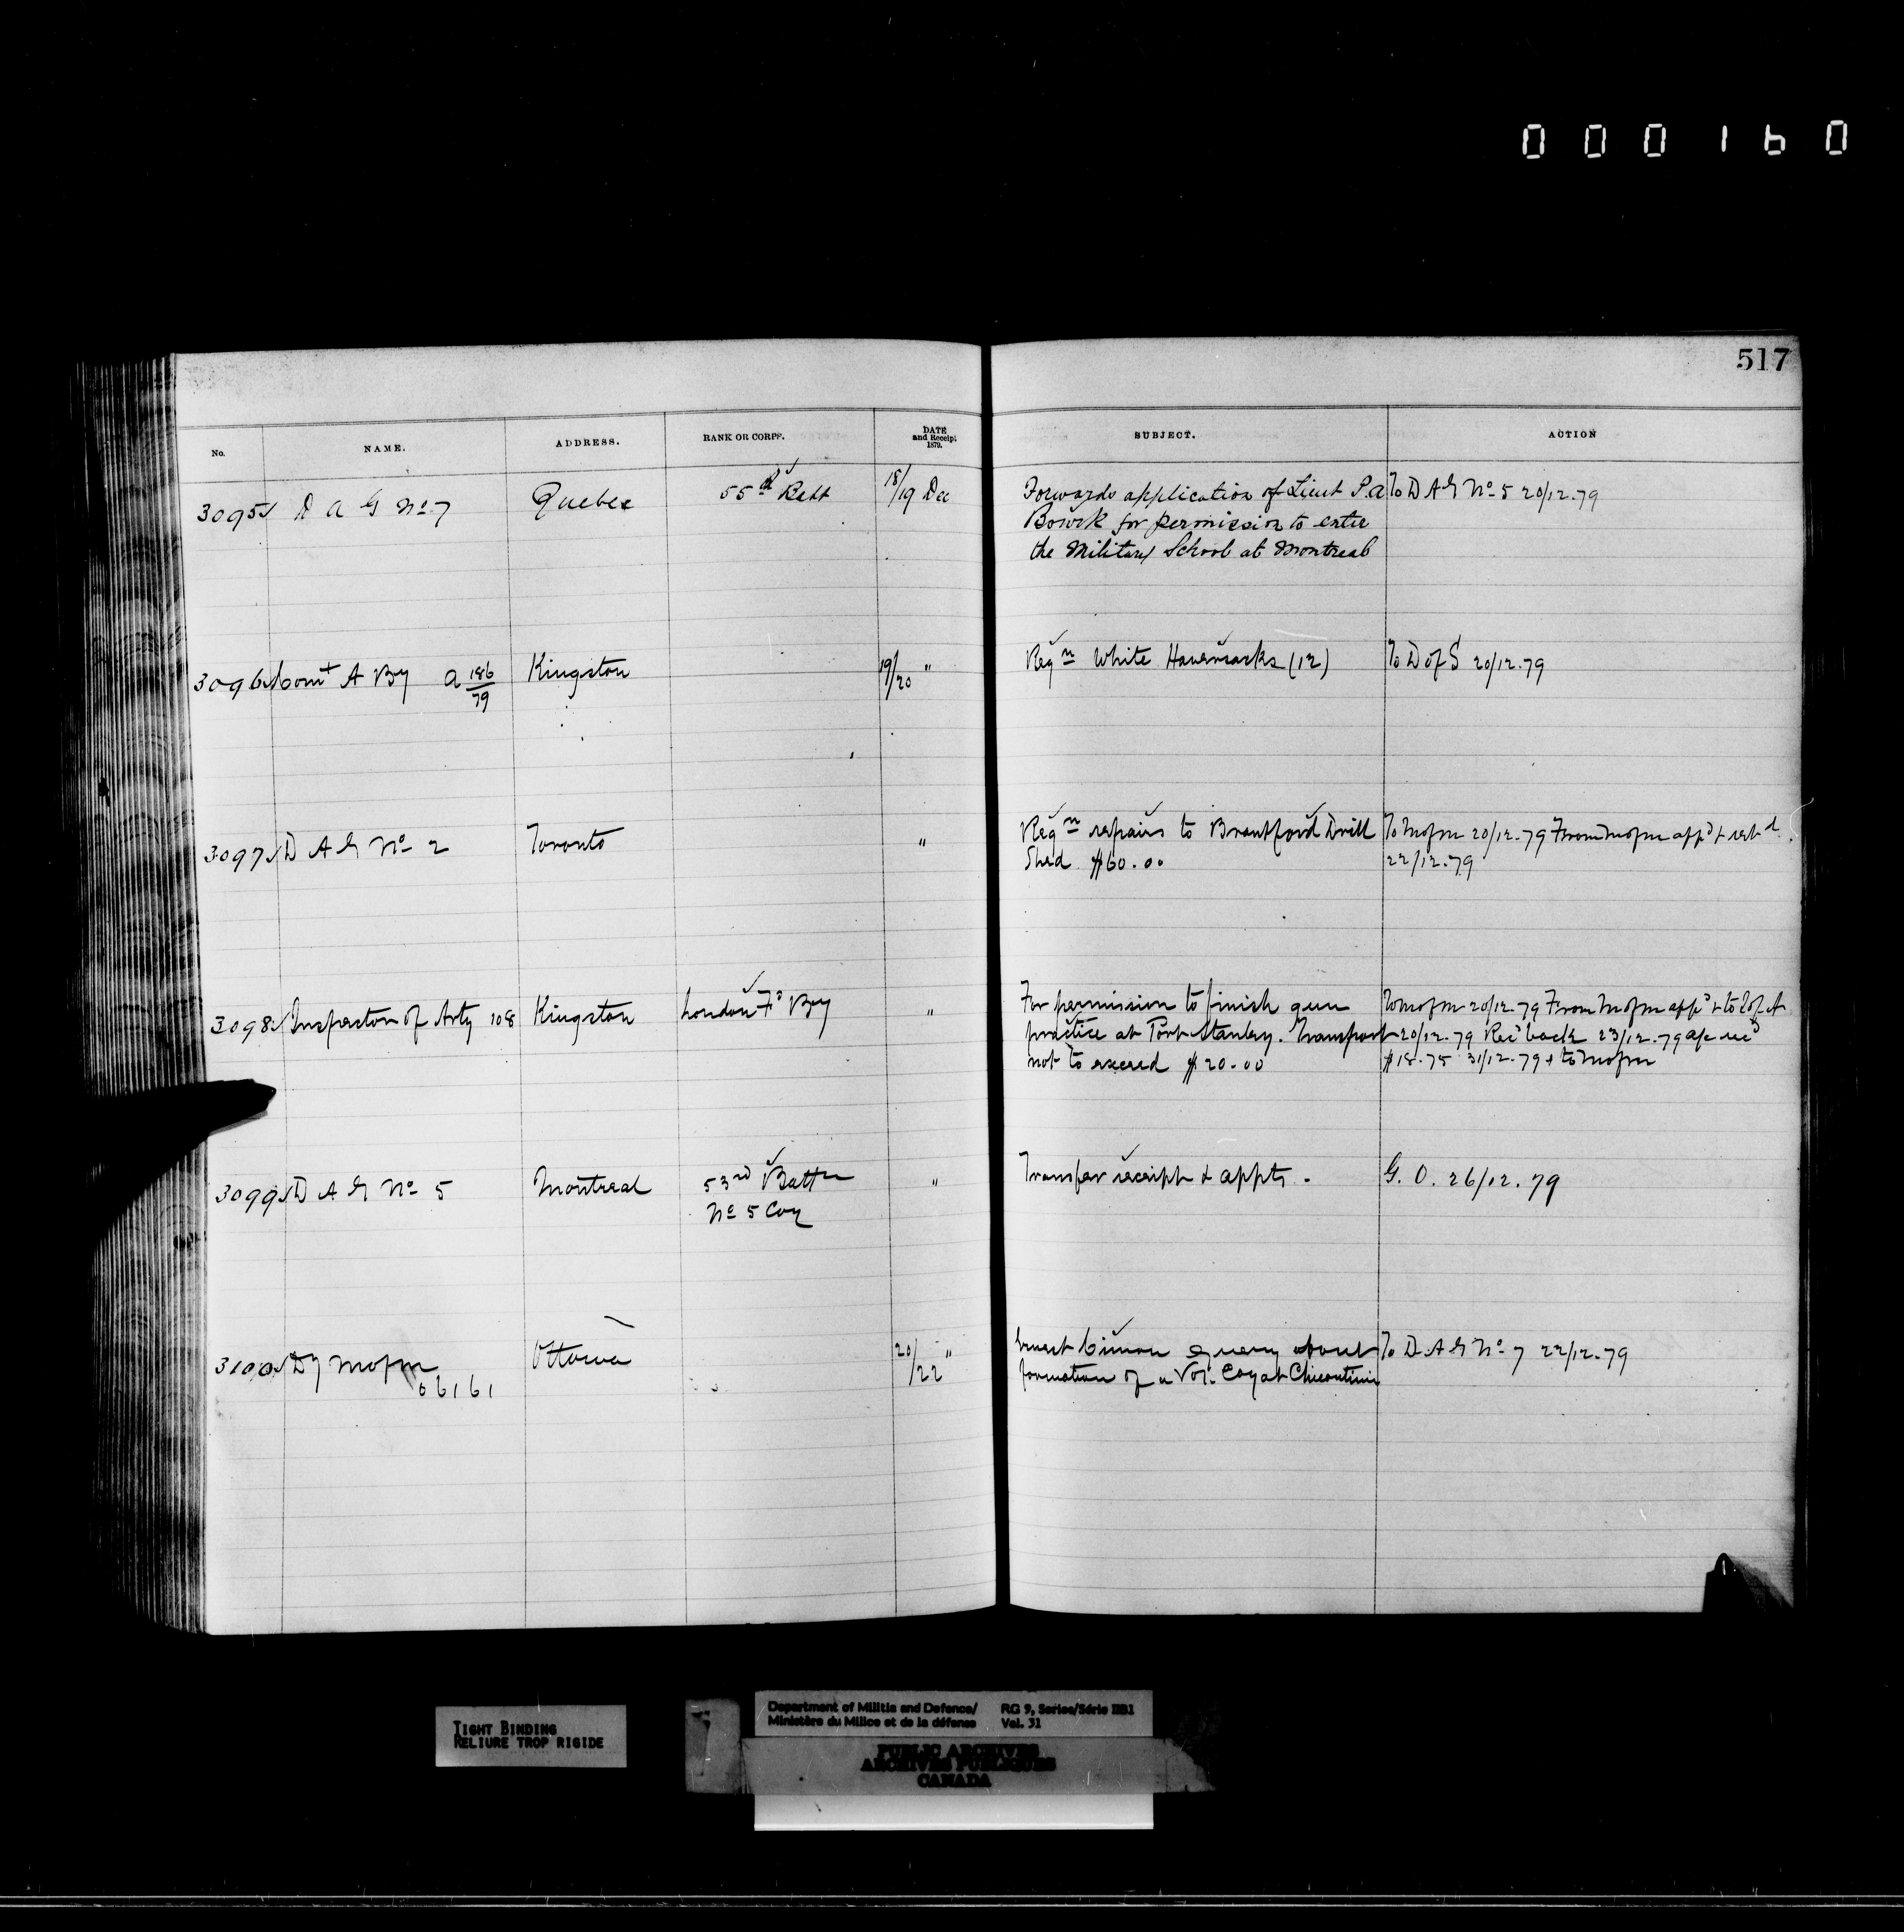 000160
517
No. NAME. ADDRESS. RANK OR CORPS. DATE and Receipt 1879. SUBJECT. ACTION
3095 D A G No 7 Quebec 55th Batt 18/19 Dec Forwards application of Lieut P. A To D A G No 5 20/12.79
for permission to enter
the Military School at Montreal
3096 Comt A By A 186/79 Kingston 19/20 " Reqn White Haversacks (12) To D of S 20/12.79
3097 D A G No 2 Toronto " Reqn repairs to Brantford Drill To MofM 20/12.79 From MofM appd & retd
Shed $60.00 22/12.79
3098 Inspector of Arty 108 Kingston London Fd By " For permission to finish gun To MofM 20/12.79 From MofM appd & to I of A
practice at Port Stanley. Transport 20/12.79 Recd back 23/12.79 a/c recd
not to exceed $20.00 $18.75 31/12.79 & to MofM
3099 D A G No 5 Montreal 53rd Battn " Transfer receipt & appts. G. O. 26/12.79
No 5 Coy
3100 Dy MofM Ottawa 20/22 " Ernest Cimon query about To D A G No 7 22/12.79
06161 formation of a Vol. Coy at Chicoutimi
TIGHT BINDING
RELIURE TROP RIGIDE
Department of Militia and Defence/ RG 9, Series/Série IIB1
Ministère du Milice et de la défense Vol. 31
PUBLIC ARCHIVES
ARCHIVES PUBLIQUES
CANADA